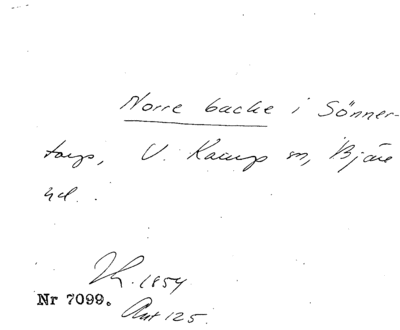 Norre backe i Sönner-
torps, V. Karup sn, Bjäre
hd.
Th. 1854
Nr 7099.
Ant 125.